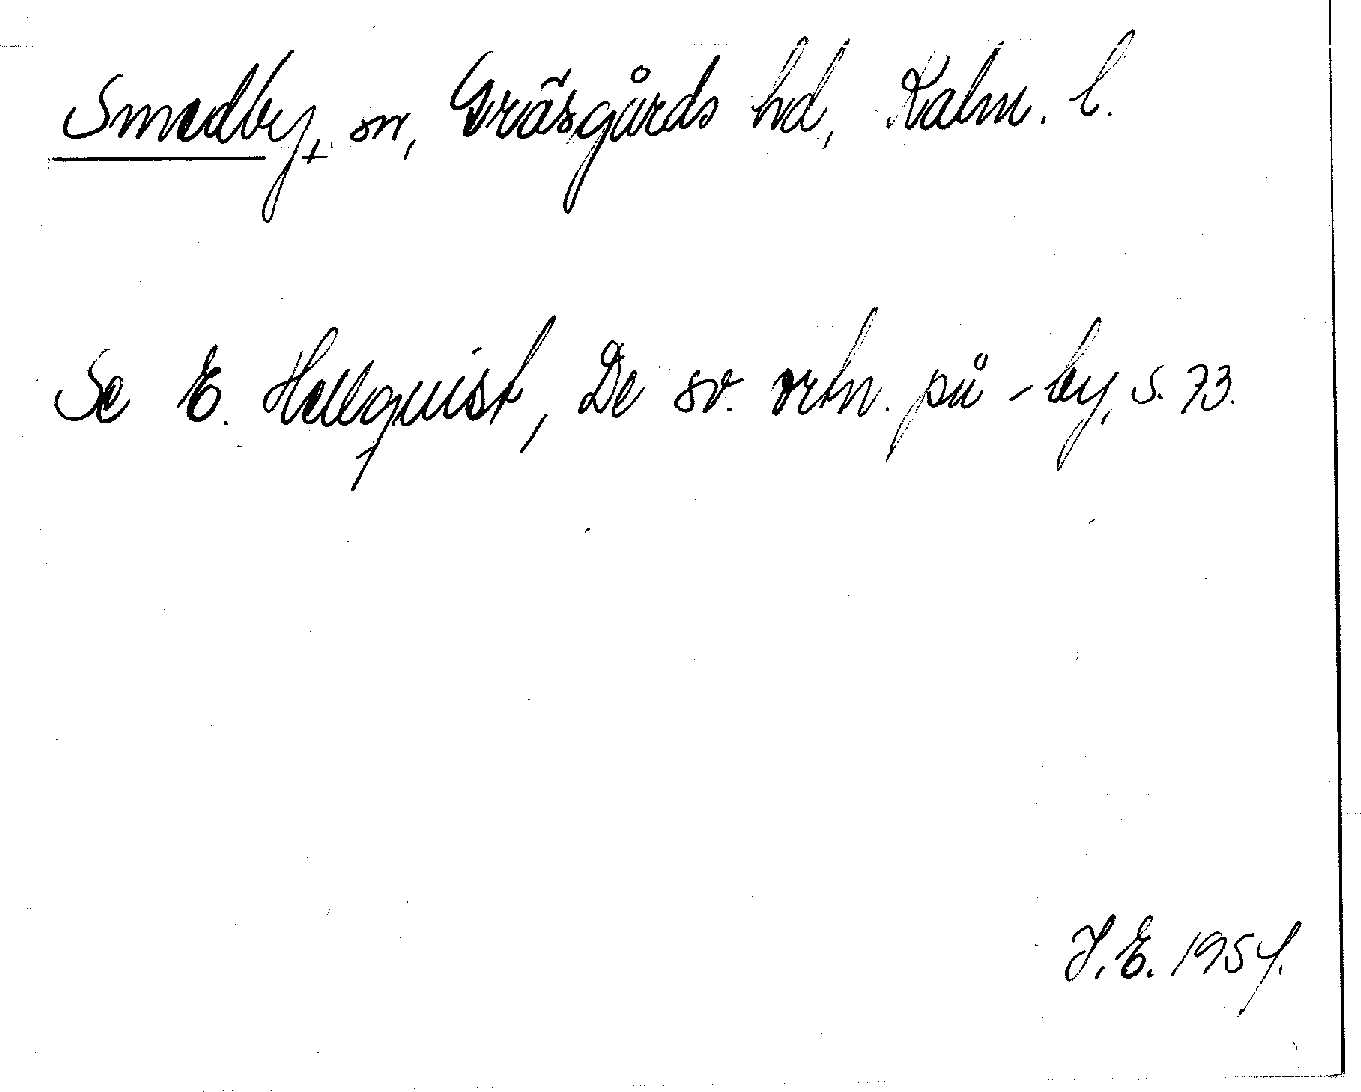 Smedby, sn, Gräsgårds hd, Kalm. l.
Se E. Hellquist, De sv. ortn. på -by, s. 73.
J. E. 1954.